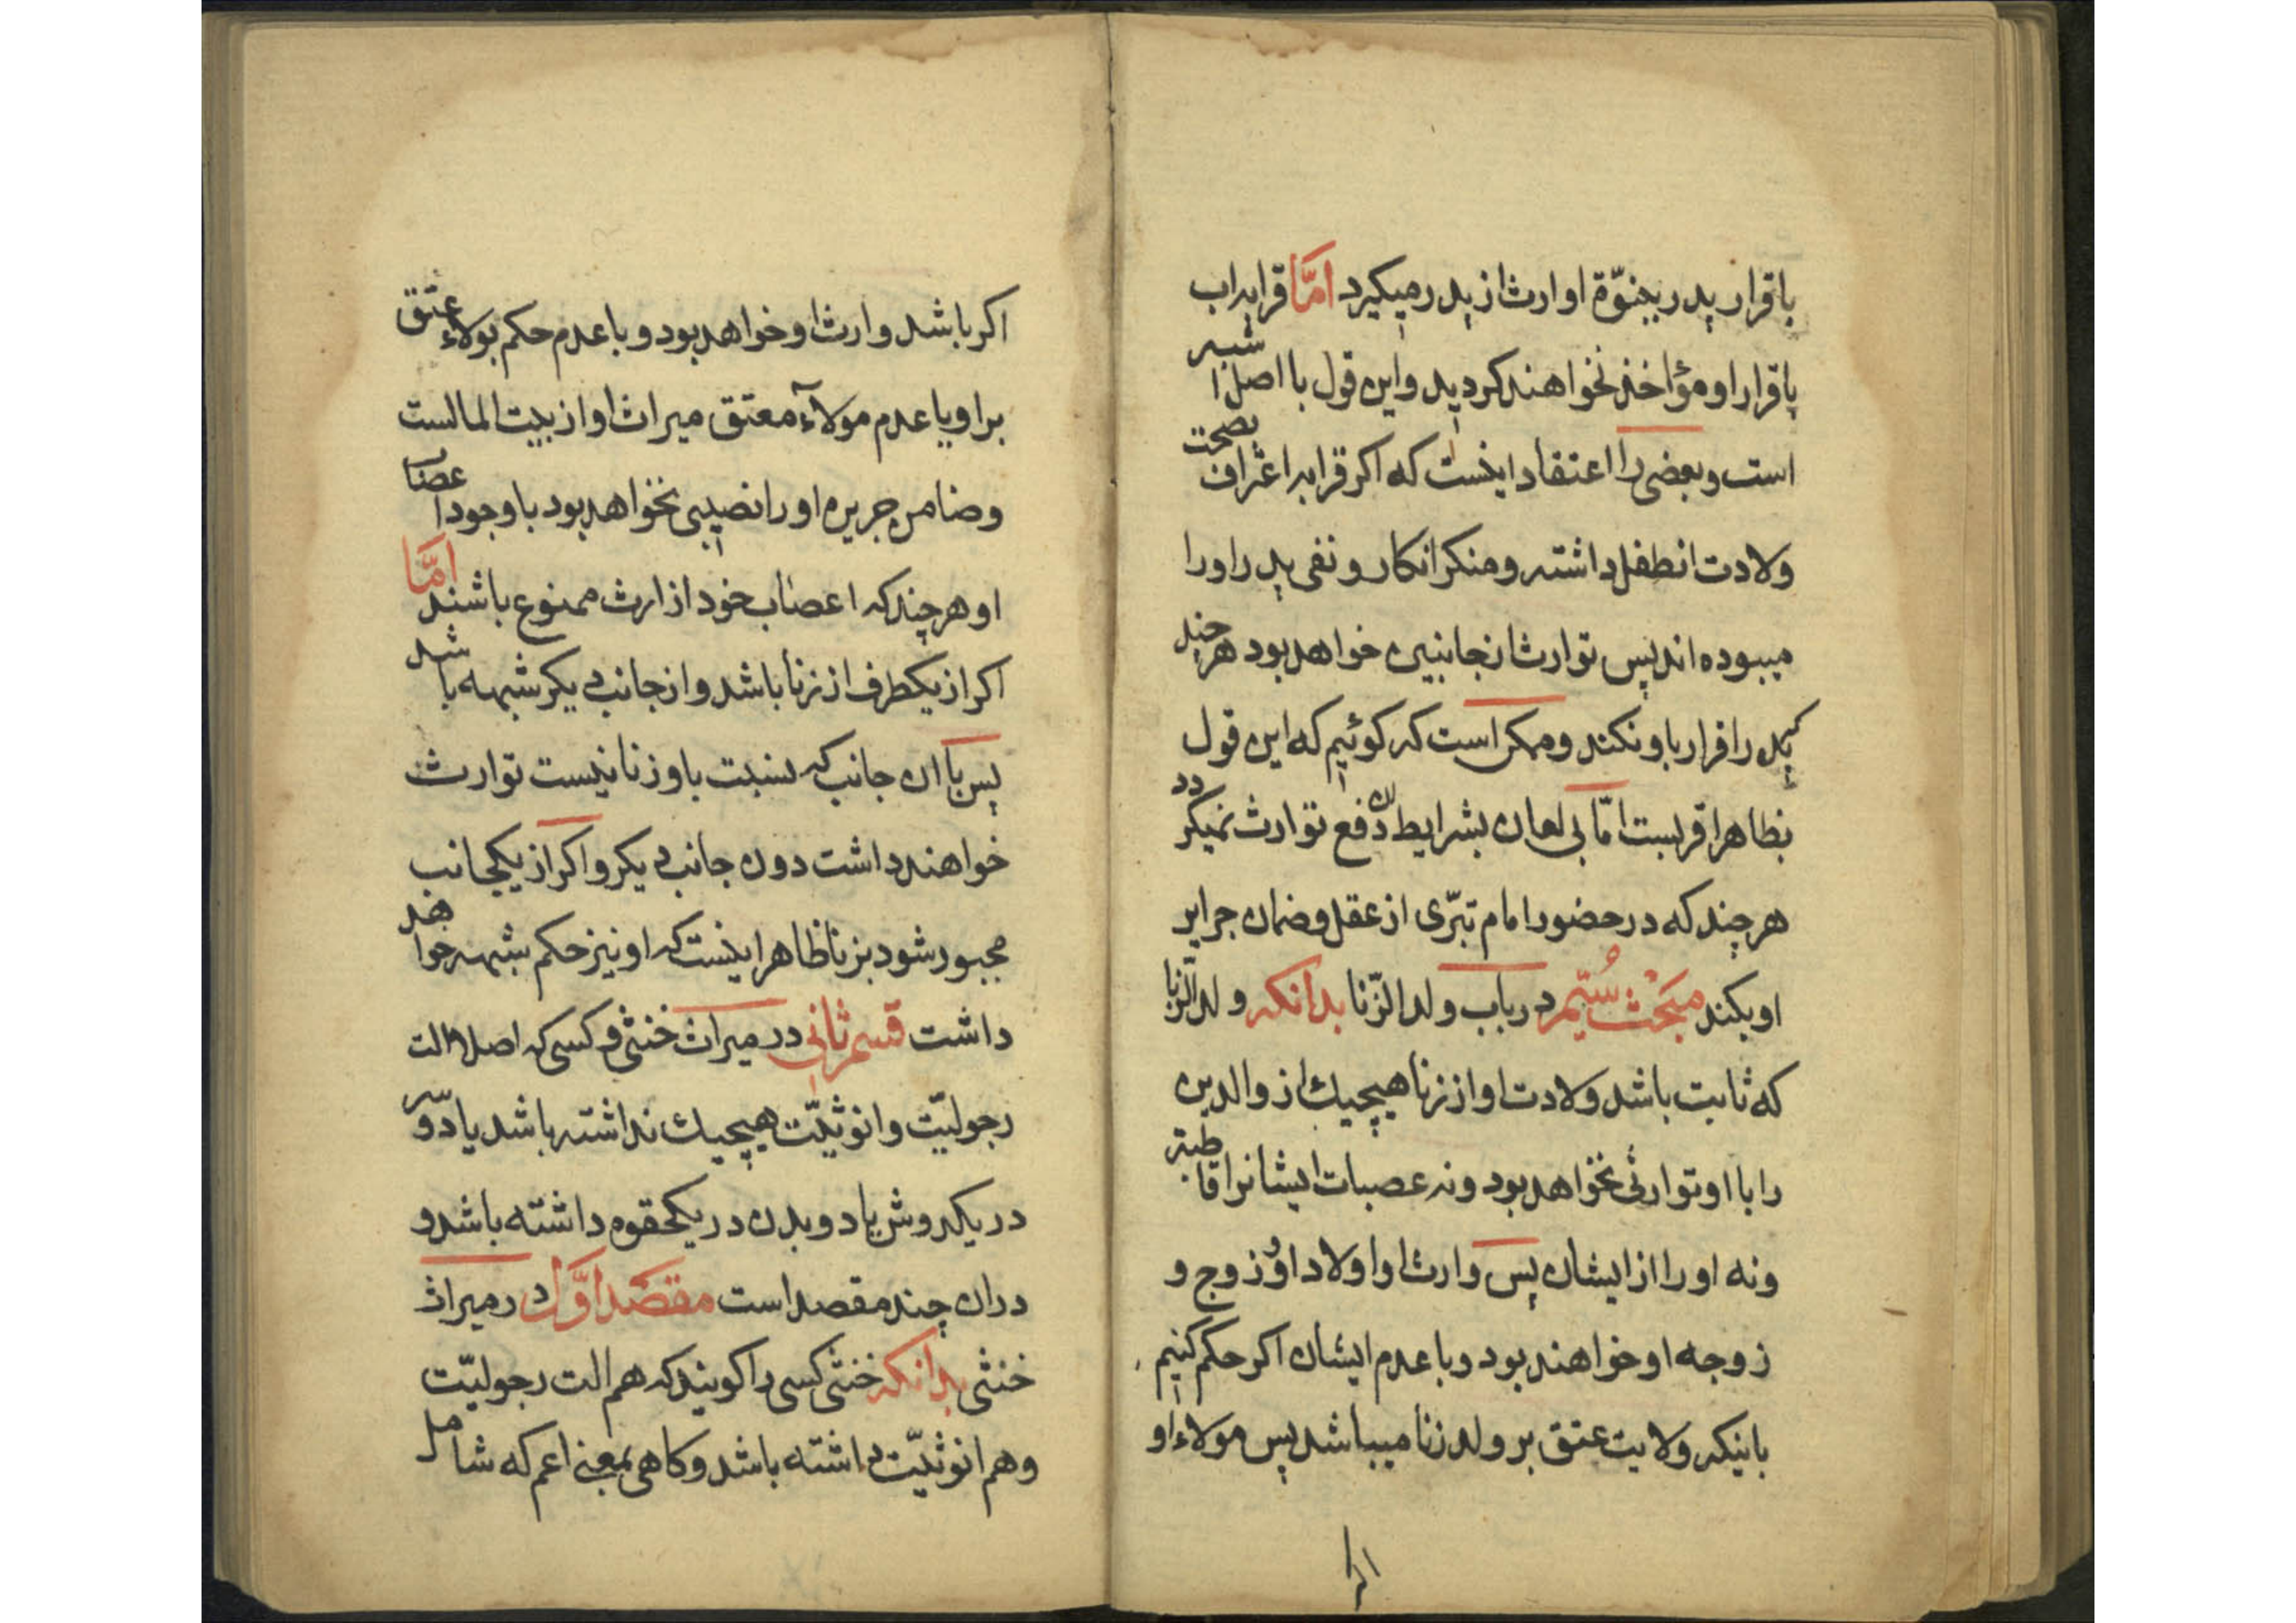 باقرار پدر ببنوّة او ارث از پدر میکیرد امّا قرابه اب
باقرار او مؤاخذ نخواهند کردید واین قول با اصل اشبه
است وبعضی را اعتقاد اینست که اکر قرابه اعتراف بصحت
ولادت انطفل داشته ومنکر انکار ونفی پدر اورا
میبوده اند پس توارث از جانبین خواهد بود هرچند
که پدر اقرار باو نکند وممکن است که کوئیم که این قول
بظاهر اقربست امّا بی لعان بشرایط ان دفع توارث نمیکردد
هرچند که در حضور امام تبرّی از عقل وضمان جرایر
او بکند مبحث سُیّم در باب ولد الزّنا بدانکه ولد الزّنا
که ثابت باشد ولادت او از زنا هیچیك از والدین
را با او توارثی نخواهد بود ونه عصبات ایشانرا قاطبة
ونه اورا از ایشان پس وارث او اولاد او وزوج و
زوجه او خواهند بود وبا عدم ایشان اکر حکم کنیم
باینکه ولایت عتق بر ولد زنا میباشد پس مولاء او
اکر
اکر باشد وارث او خواهد بود وبا عدم حکم بولاء عتق
بر او یا عدم مولاء معتق میراث او از بیت المالست
وضامن جریره اورا نصیبی نخواهد بود با وجود اعصاب
او هرچند که اعصاب خود از ارث ممنوع باشند امّا
اکر از یکطرف از زنا باشد واز جانب دیکر شبهه باشد
پس با ان جانب که نسبت باو زنا نیست توارث
خواهند داشت دون جانب دیکر واکر از یکجانب
مجبور شود بزنا ظاهر اینست که او نیز حکم شبهه خواهد
داشت قسم ثانی در میراث خنثی وکسی که اصلا الت
رجولیّت وانوثیّت هیچیك نداشته باشد یا دو سر
در یکدوش یا دو بدن در یکحقوه داشته باشد و
دران چند مقصد است مقصد اوّل در میراث
خنثی بدانکه خنثی کسی را کویند که هم الت رجولیّت
وهم انوثیّت داشته باشد وکاهی بمعنی اعم که شامل